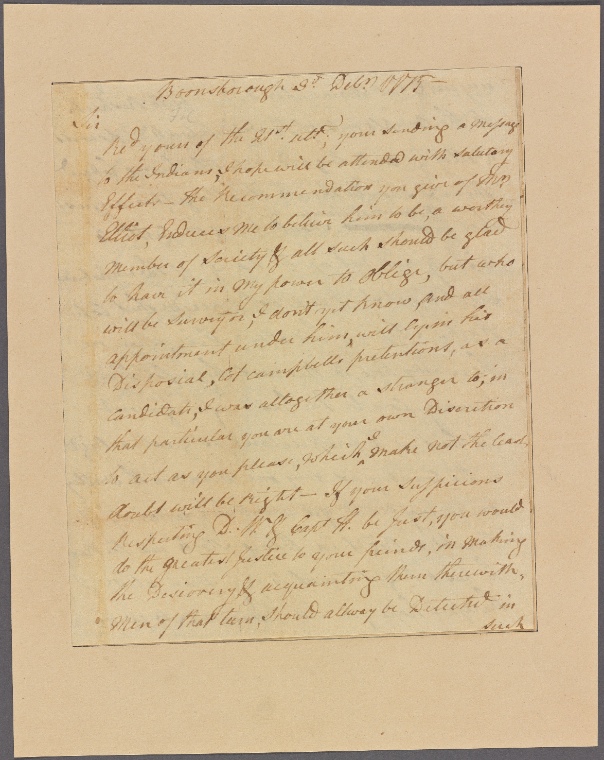 Boonsborough 3d Debr 1775—
Sir
Recd yours of the 21st ultr, your sending a message
to the Indians, I hope will be attended with salutary
Effects— the Recommendation you give of Mr
Elliot, Enduces me to believe him to be, a worthy
Member of Society & all such should be glad
to have it in my power to oblige, but who
will be surveyor, I dont yet know, and all
appointment under him, will ly in his
Disposial, Col campbells pretentions, as a
candidate, I was altogether a stranger to, in
that particular you are at your own Discretion
to act as you please, which I make not the least
doubt will be right— If your suspicions
Respecting D. & Capt H. be Just, you would
do the greatest Justice to your freinds, in making
the Discovery & acquainting them therewith,
Men of that turn, should allway be Detected in
such